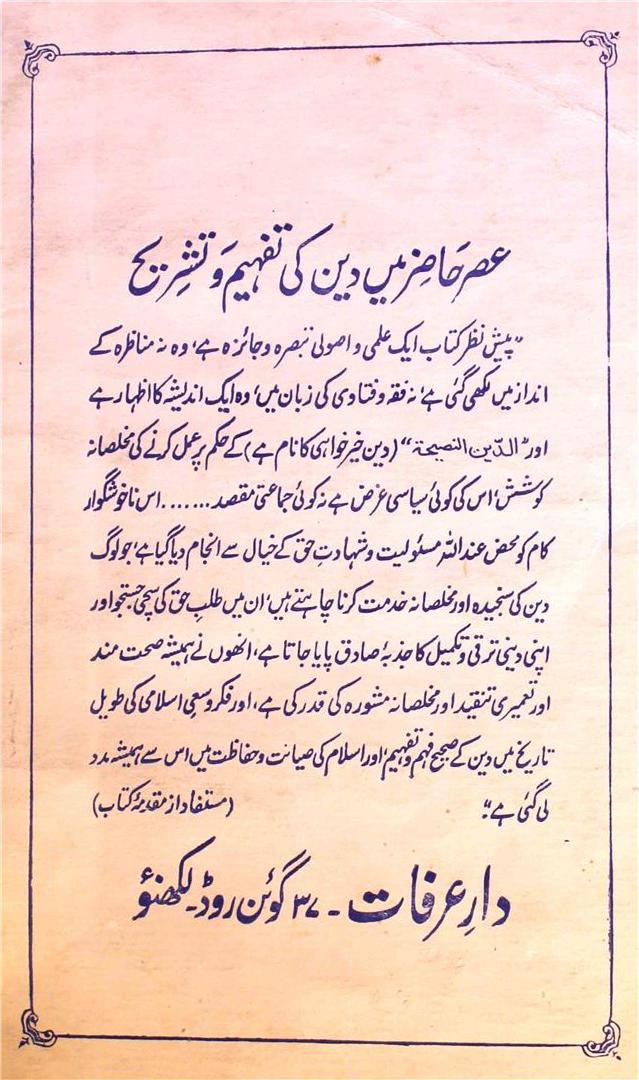 عصر حاضر میں دین کی تفہیم و تشریح
"پیش نظر کتاب ایک علمی و اصولی تبصرہ و جائزہ ہے، وہ نہ مناظرہ کے
انداز میں لکھی گئی ہے، نہ فقہ و فتاوی کی زبان میں، وہ ایک اندیشہ کا اظہار ہے
اور "الدّین النصیحۃ" (دین خیر خواہی کا نام ہے) کے حکم پر عمل کرنے کی مخلصانہ
کوشش، اس کی کوئی سیاسی غرض ہے نہ کوئی جماعتی مقصد ....... اس ناخوشگوار
کام کو محض عنداللہ مسئولیت و شہادتِ حق کے خیال سے انجام دیا گیا ہے، جو لوگ
دین کی سنجیدہ اور مخلصانہ خدمت کرنا چاہتے ہیں، ان میں طلبِ حق کی سچی جستجو اور
اپنی دینی ترقی و تکمیل کا جذبۂ صادق پایا جاتا ہے، انھوں نے ہمیشہ صحت مند
اور تعمیری تنقید اور مخلصانہ مشورہ کی قدر کی ہے، اور فکر و سعیِ اسلامی کی طویل
تاریخ میں دین کے صحیح فہم و تفہیم، اور اسلام کی صیانت و حفاظت میں اس سے ہمیشہ مدد
لی گئی ہے۔" (مستفاد از مقدمۂ کتاب)
دارِ عرفات ۔ ۳۷ گوئن روڈ۔ لکھنؤ